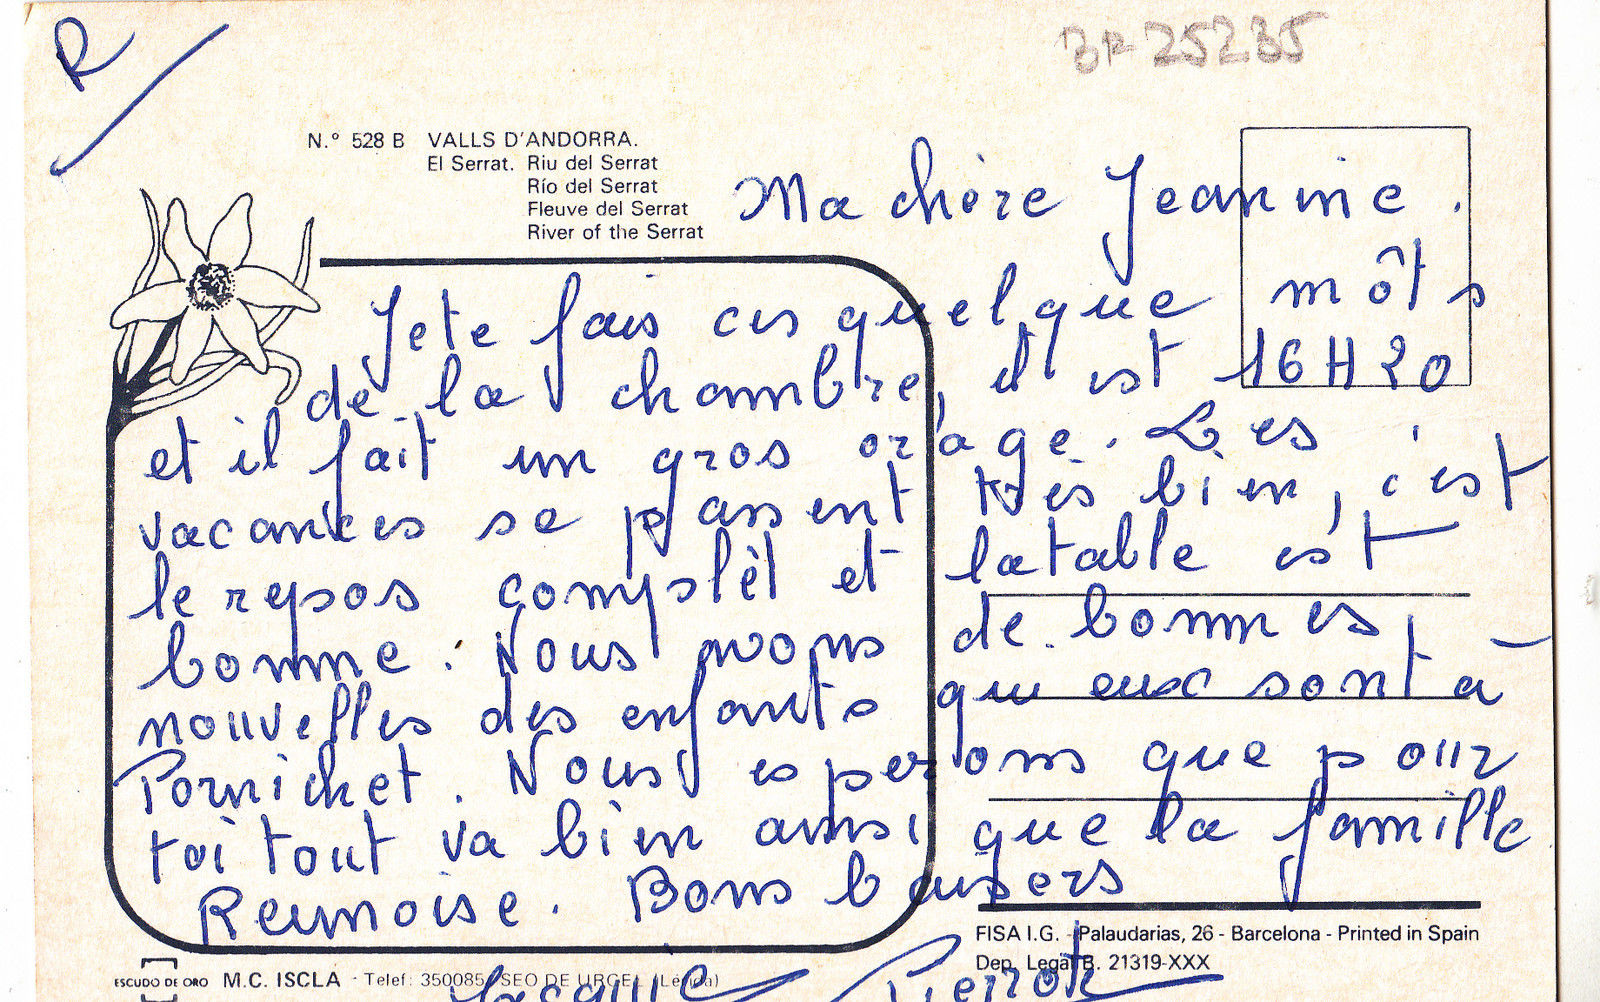 R
BR 25235
N.º 528 B VALLS D'ANDORRA.
El Serrat. Riu del Serrat
Río del Serrat
Fleuve del Serrat
River of the Serrat
Ma chère Jeannine.
Je te fais ces quelque môts
de la chambre, il est 16 H 20
et il fait un gros orage. Les
vacances se passent très bien, c'est
le repos complèt et la table est
bonne. Nous avons de bonnes
nouvelles des enfants qui eux sont à
Pornichet. Nous esperons que pour
toi tout va bien ainsi que la famille
Remoise. Bons baisers
Jacquie Pierrot
FISA I.G. - Palaudarias, 26 - Barcelona - Printed in Spain
Dep. Legal B. 21319-XXX
ESCUDO DE ORO M.C. ISCLA - Telef: 350085 SEO DE URGEL (Lérida)